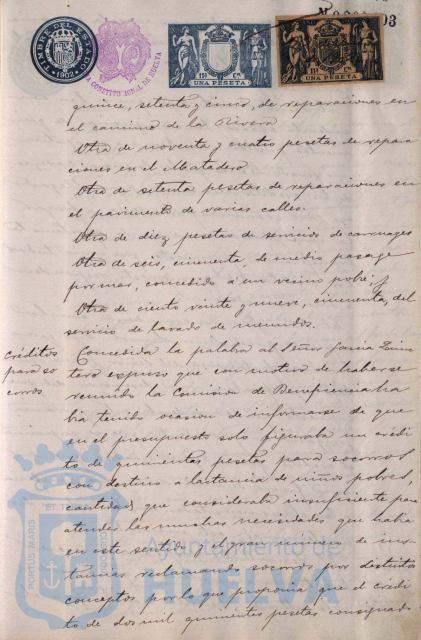 TIMBRE DEL ESTADO
1902
11ª Cª
UNA PESETA
11ª Cª
UNA PESETA
quince, setenta y cinco, de reparaciones en
el camino de la Rivera
Otra de noventa y cuatro pesetas de repara
ciones en el Matadero
Otra de setenta pesetas de reparaciones en
el pavimento de varias calles.
Otra de diez pesetas de servicios de carruages
Otra de seis, cincuenta, de medio pasage
por mar, concedido á un vecino pobre; y
Otra de ciento veinte y nueve, cincuenta, del
servicio de lavado de menudos.
Créditos
para so
corros
Concedida la palabra al Señor García
tera expuso que con motivo de haberse
reunido la Comision de Beneficencia ha
bia tenido ocasion de informarse de que
en el presupuesto solo figuraba un crédi
to de quinientas pesetas para socorros
con destino á lactancia de niños pobres,
cantidad que consideraba insuficiente para
atender las muchas necesidades que habia
en este sentido y el gran número de ins
tancias reclamando socorros por distintos
conceptos por lo que proponia que el crédi
to de dos mil quinientas pesetas consignado
PORTUS MARIS
Ayuntamiento de
HUELVA